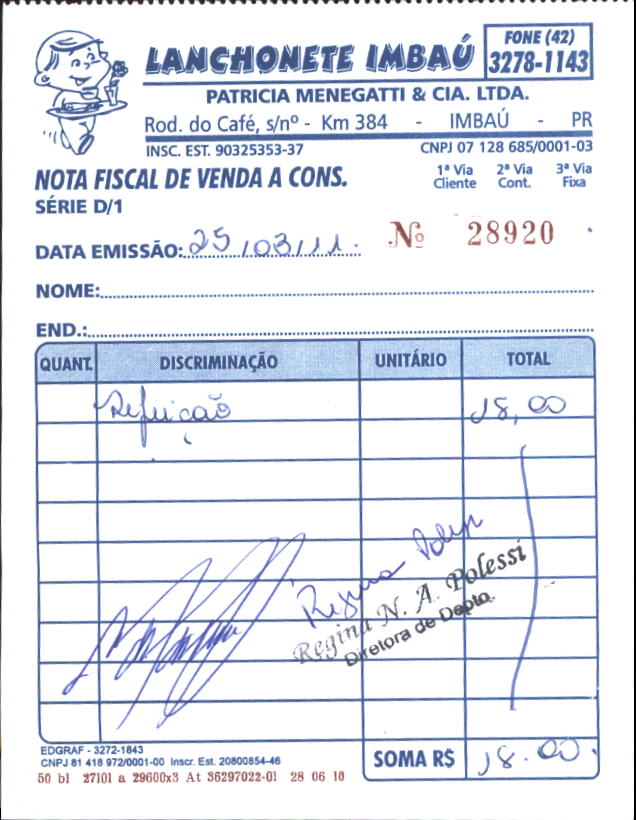 LANCHONETE IMBAÚ
FONE (42)
3278-1143
PATRICIA MENEGATTI & CIA. LTDA.
Rod. do Café, s/nº - Km 384 - IMBAÚ - PR
INSC. EST. 90325353-37 CNPJ 07 128 685/0001-03
NOTA FISCAL DE VENDA A CONS.
1ª Via Cliente 2ª Via Cont. 3ª Via Fixa
SÉRIE D/1
DATA EMISSÃO: 25/03/11. Nº 28920
NOME:
END.:
QUANT. DISCRIMINAÇÃO UNITÁRIO TOTAL
Refeição 18,00
Regina Polessi
Regina N. A. Polessi
Diretora de Depto.
EDGRAF - 3272-1843
CNPJ 81 418 972/0001-00 Inscr. Est. 20800854-46
50 bl 27101 a 29600x3 At 36297022-01 28 06 10
SOMA R$ 18.00